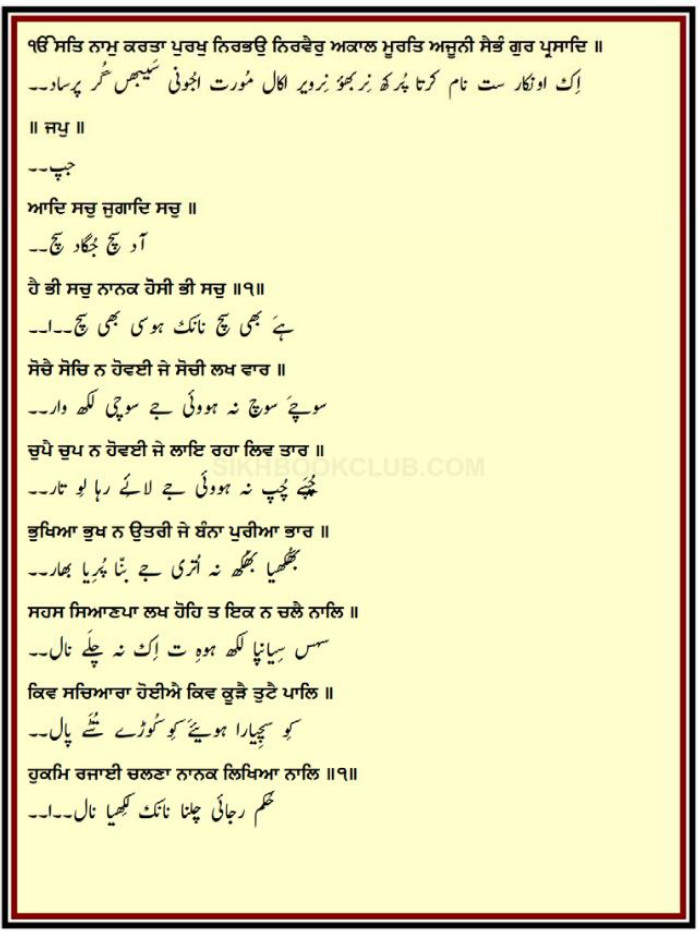 ੴ ਸਤਿ ਨਾਮੁ ਕਰਤਾ ਪੁਰਖੁ ਨਿਰਭਉ ਨਿਰਵੈਰੁ ਅਕਾਲ ਮੂਰਤਿ ਅਜੂਨੀ ਸੈਭੰ ਗੁਰ ਪ੍ਰਸਾਦਿ ॥
اِک اونکار ست نام کرتا پُرکھ نِربھؤ نِرویر اکال مُورت اجُونی سَیبھں گُر پرساد۔۔
॥ ਜਪੁ ॥
جپ۔۔
ਆਦਿ ਸਚੁ ਜੁਗਾਦਿ ਸਚੁ ॥
آد سچ جُگاد سچ۔۔
ਹੈ ਭੀ ਸਚੁ ਨਾਨਕ ਹੋਸੀ ਭੀ ਸਚੁ ॥੧॥
ہےَ بھی سچ نانک ہوسی بھی سچ۔۔ا۔۔
ਸੋਚੈ ਸੋਚਿ ਨ ਹੋਵਈ ਜੇ ਸੋਚੀ ਲਖ ਵਾਰ ॥
سوچےَ سوچ نہ ہووئی جے سوچی لکھ وار۔۔
ਚੁਪੈ ਚੁਪ ਨ ਹੋਵਈ ਜੇ ਲਾਇ ਰਹਾ ਲਿਵ ਤਾਰ ॥
SIKHBOOKCLUB.COM
چُپَے چُپ نہ ہووئی جے لائے رہا لِو تار۔۔
ਭੁਖਿਆ ਭੁਖ ਨ ਉਤਰੀ ਜੇ ਬੰਨਾ ਪੁਰੀਆ ਭਾਰ ॥
بھُکھیا بھُکھ نہ اُتری جے بنّا پُریا بھار۔۔
ਸਹਸ ਸਿਆਣਪਾ ਲਖ ਹੋਹਿ ਤ ਇਕ ਨ ਚਲੈ ਨਾਲਿ ॥
سہس سِیانپا لکھ ہوہِ ت اِک نہ چلَے نال۔۔
ਕਿਵ ਸਚਿਆਰਾ ਹੋਈਐ ਕਿਵ ਕੂੜੈ ਤੁਟੈ ਪਾਲਿ ॥
کِو سچِیارا ہوئیےَ کِو کُوڑے تُٹَے پال۔۔
ਹੁਕਮਿ ਰਜਾਈ ਚਲਣਾ ਨਾਨਕ ਲਿਖਿਆ ਨਾਲਿ ॥੧॥
حُکم رجائی چلنا نانک لِکھیا نال۔۔ا۔۔